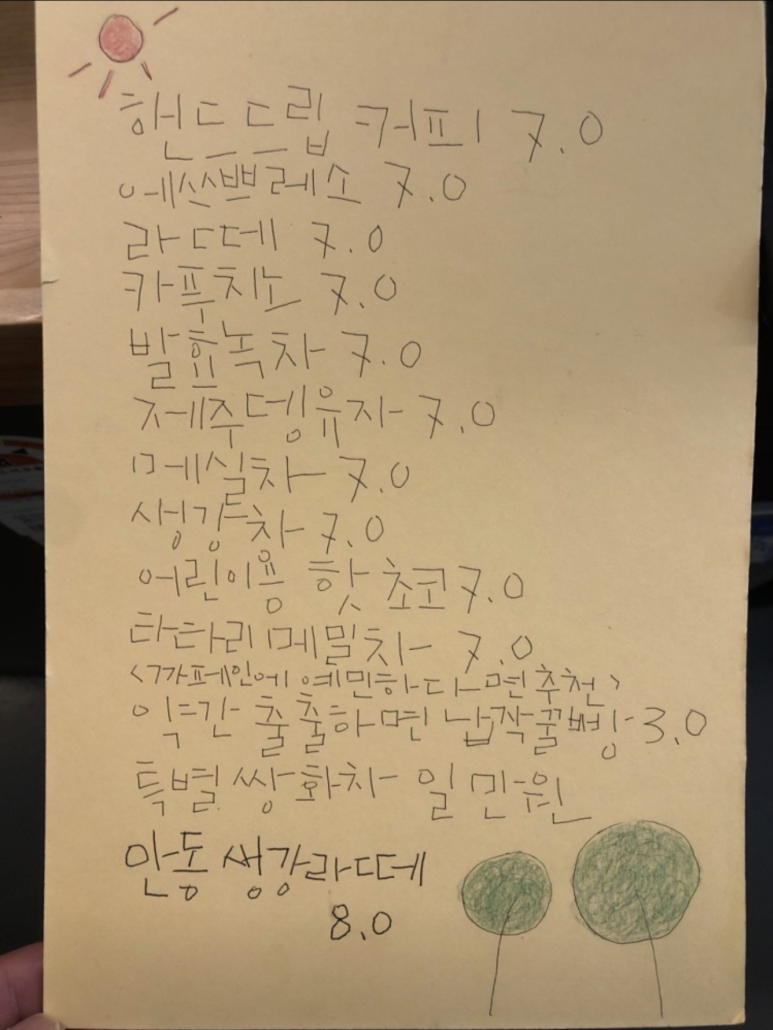 핸드드립 커피 7.0
에쓰쁘레소 7.0
라떼 7.0
카푸치노 7.0
발효녹차 7.0
제주뎅유자 7.0
메실차 7.0
생강차 7.0
어린이용 핫 초코 7.0
타타리메밀차 7.0
<카페인에 예민하다면 추천>
약간 출출하면 납작꿀빵 3.0
특별 쌍화차 일만원
안동 생강라떼
8.0